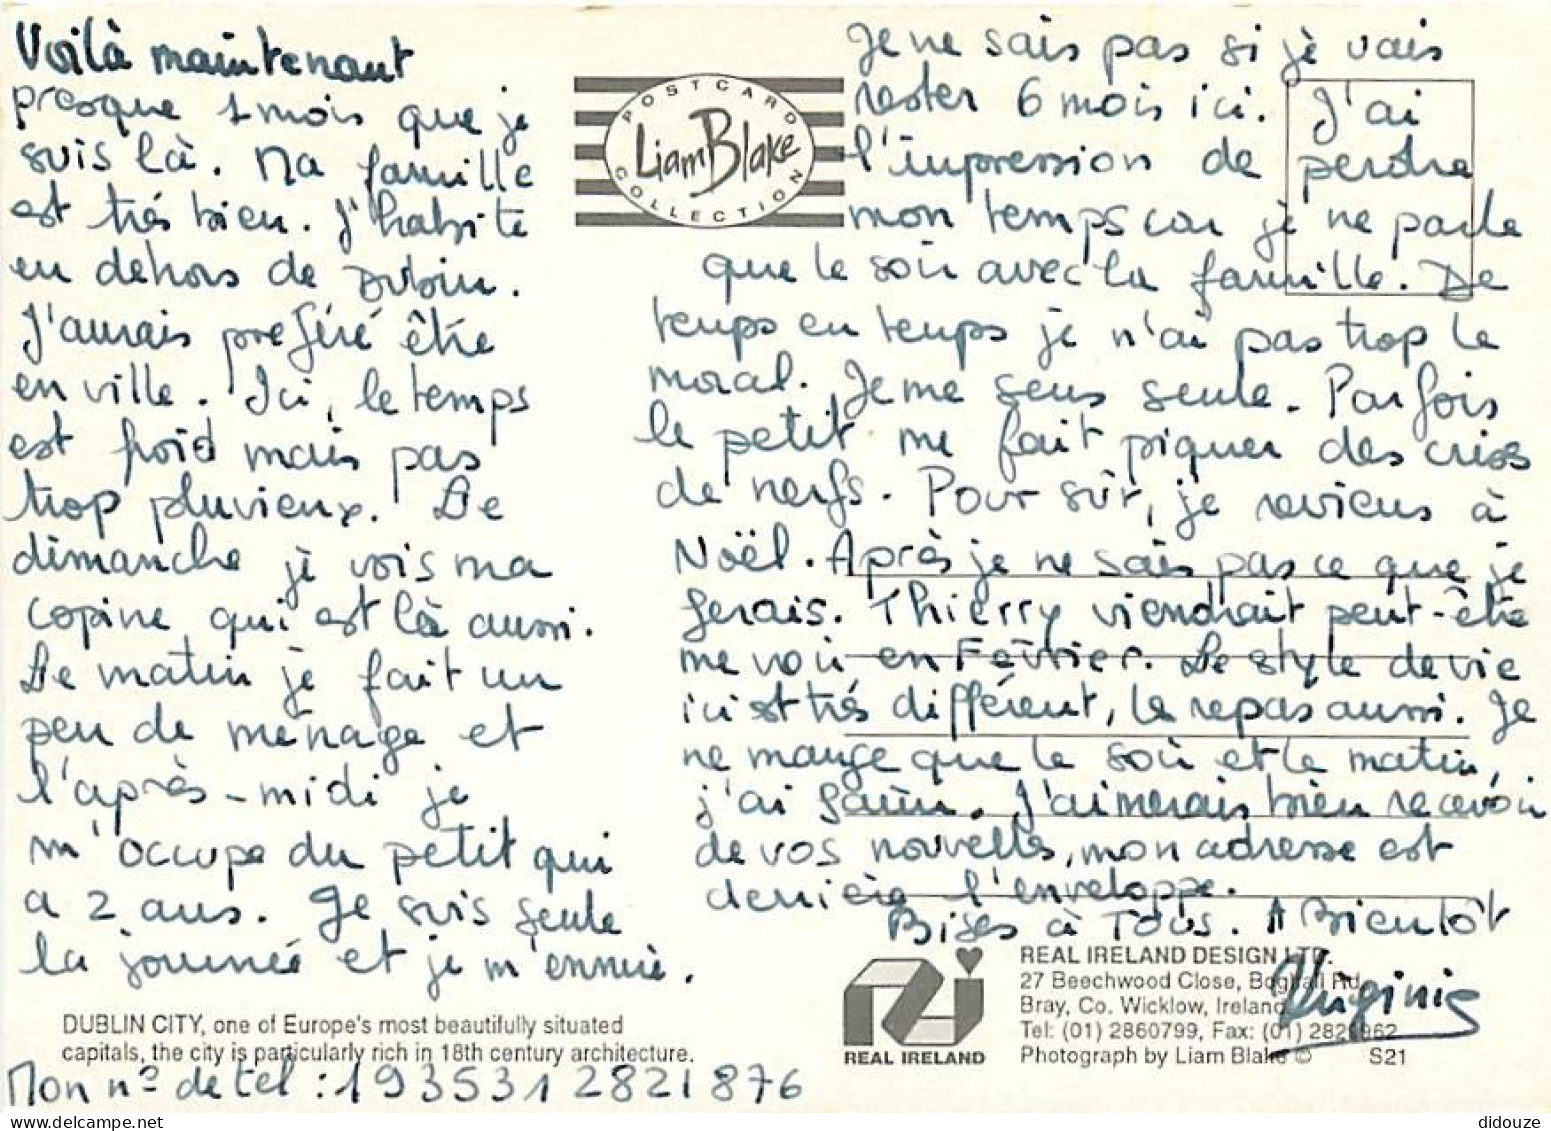 Voilà maintenant
presque 1 mois que je
suis là. Ma famille
est très bien. J'habite
en dehors de Dublin.
J'aurais preféré être
en ville. Ici, le temps
est froid mais pas
trop pluvieux. Le
dimanche je vois ma
copine qui est là aussi.
Le matin je fait un
peu de ménage et
l'après-midi je
m'occupe du petit qui
a 2 ans. Je suis seule
la journée et je m'ennuie.
DUBLIN CITY, one of Europe's most beautifully situated
capitals, the city is particularly rich in 18th century architecture.
Mon n° de tel : 1935312821876
POSTCARD
Liam Blake
COLLECTION
Je ne sais pas si je vais
rester 6 mois ici. J'ai
l'impression de perdre
mon temps car je ne parle
que le soir avec la famille. De
temps en temps je n'ai pas trop le
moral. Je me sens seule. Parfois
le petit me fait piquer des crises
de nerfs. Pour sûr, je reviens à
Noël. Après je ne sais pas ce que je
ferais. Thierry viendrait peut-être
me voir en Février. Le style de vie
ici est très différent, le repas aussi. Je
ne mange que le soir et le matin,
j'ai faim. J'aimerais bien recevoir
de vos nouvelles, mon adresse est
derrière l'enveloppe.
Bises à Tous. A Bientôt
Virginie
REAL IRELAND
REAL IRELAND DESIGN LTD.
27 Beechwood Close, Boghall Rd,
Bray, Co. Wicklow, Ireland
Tel: (01) 2860799, Fax: (01) 2829962
Photograph by Liam Blake © S21
didouze